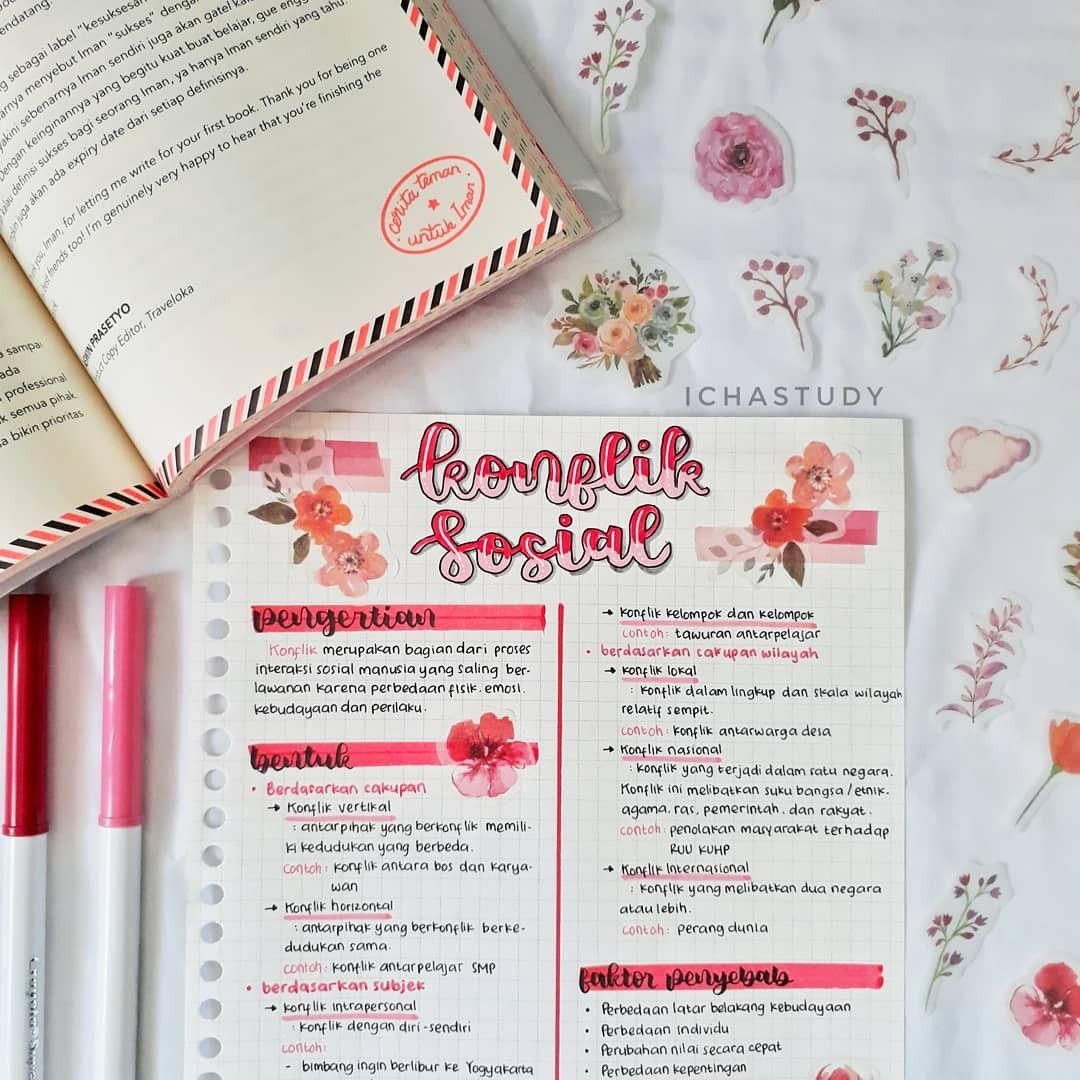 ndatang.
sebagai label “kesuksesan
nya menyebut Iman “sukses” deng
yakini sebenarnya Iman sendiri juga akan gatel ka
Dengan keinginannya yang begitu kuat buat belajar, gue
kalau definisi sukses bagi seorang Iman, ya hanya Iman sendiri yang tahu.
juga akan ada expiry date dari setiap definisinya.
you, Iman, for letting me write for your first book. Thank you for being one
friends too! I'm genuinely very happy to hear that you're finishing the
PRASETYO
Copy Editor, Traveloka
cerita teman
untuk Iman
sampai
ada
professional
semua pihak.
bikin prioritas
ICHASTUDY
konflik
sosial
pengertian
Konflik merupakan bagian dari proses
interaksi sosial manusia yang saling ber-
lawanan karena perbedaan fisik, emosi,
kebudayaan dan perilaku.
bentuk
• Berdasarkan cakupan
→ Konflik vertikal
: antarpihak yang berkonflik memili-
ki kedudukan yang berbeda.
contoh: konflik antara bos dan karya-
wan
→ Konflik horizontal
: antarpihak yang berkonflik berke-
dudukan sama.
contoh: konflik antarpelajar SMP
• berdasarkan subjek
→ konflik intrapersonal
: konflik dengan diri-sendiri
contoh:
- bimbang ingin berlibur ke Yogyakarta
→ konflik kelompok dan kelompok
contoh: tawuran antarpelajar
• berdasarkan cakupan wilayah
→ konflik lokal
: konflik dalam lingkup dan skala wilayah
relatif sempit.
contoh: konflik antarwarga desa
→ konflik nasional
: konflik yang terjadi dalam satu negara.
Konflik ini melibatkan suku bangsa/etnik,
agama, ras, pemerintah, dan rakyat.
contoh: penolakan masyarakat terhadap
RUU KUHP
→ Konflik Internasional
: konflik yang melibatkan dua negara
atau lebih.
contoh: perang dunia
faktor penyebab
• Perbedaan latar belakang kebudayaan
• Perbedaan Individu
• Perubahan nilai secara cepat
• Perbedaan kepentingan